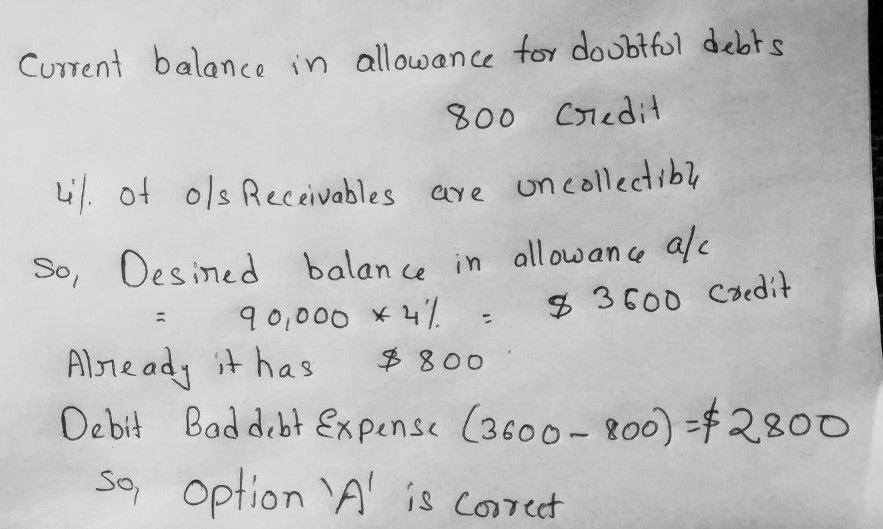 Current balance in allowance for doubtful debts
800 Credit
4%. of o/s Receivables are uncollectible
So, Desired balance in allowance a/c
= 90,000 * 4% = $ 3600 Credit
Already it has $ 800
Debit Bad debt Expense (3600 - 800) = $2800
So, option 'A' is correct